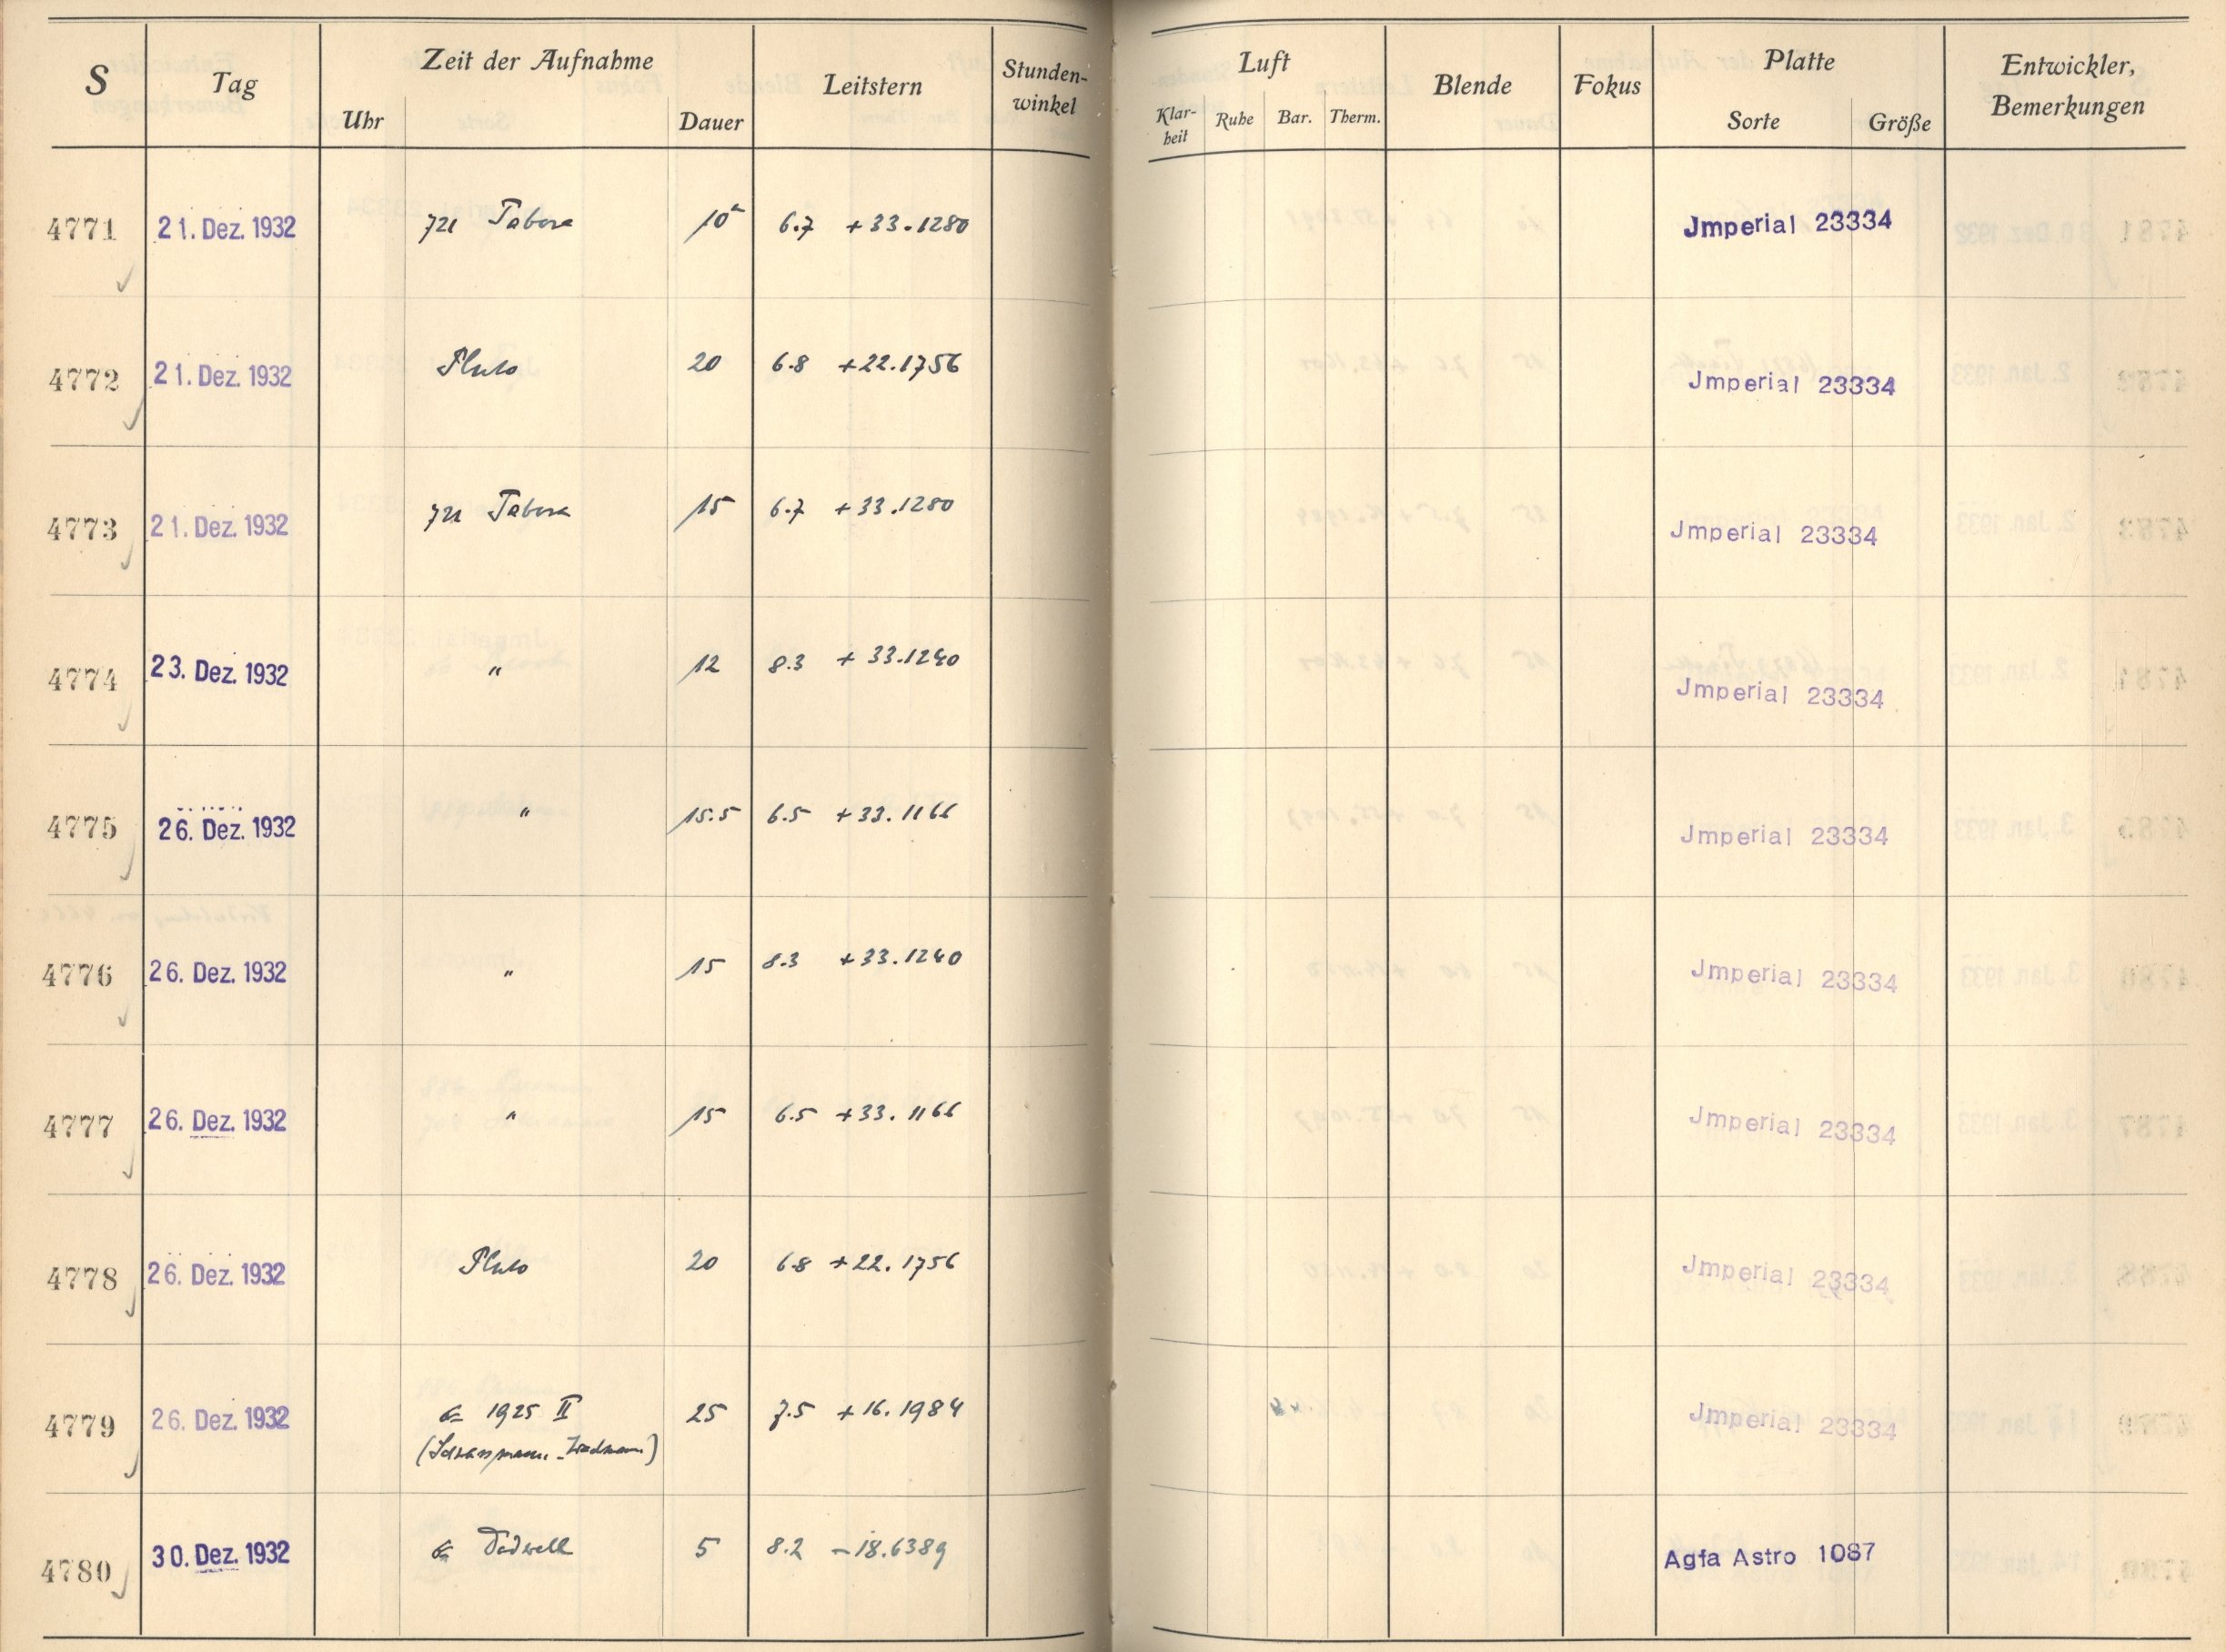 S Tag Zeit der Aufnahme Leitstern Stunden-winkel Luft Blende Fokus Platte Entwickler, Bemerkungen
Uhr Dauer Klar-heit Ruhe Bar. Therm. Sorte Größe
4771 21. Dez. 1932 721 Tabora 10ᵐ 6.7 +33.1280 Jmperial 23334
4772 21. Dez. 1932 Pluto 20 6.8 +22.1756 Jmperial 23334
4773 21. Dez. 1932 721 Tabora 15 6.7 +33.1280 Jmperial 23334
4774 23. Dez. 1932 " 12 8.3 +33.1240 Jmperial 23334
4775 26. Dez. 1932 " 15.5 6.5 +33.1166 Jmperial 23334
4776 26. Dez. 1932 " 15 8.3 +33.1240 Jmperial 23334
4777 26. Dez. 1932 " 15 6.5 +33.1166 Jmperial 23334
4778 26. Dez. 1932 Pluto 20 6.8 +22.1756 Jmperial 23334
4779 26. Dez. 1932 1925 II 25 7.5 +16.1984 Jmperial 23334
4780 30. Dez. 1932 Dodwell 5 8.2 -18.6389 Agfa Astro 1087